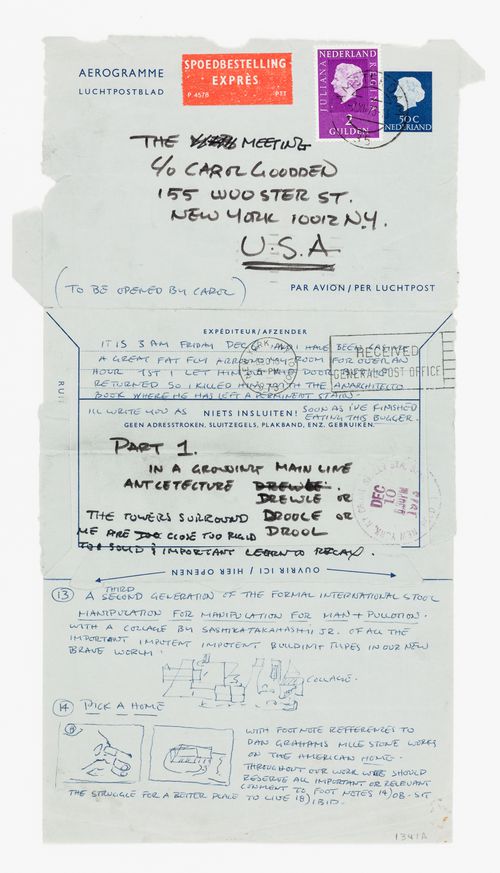 AEROGRAMME
LUCHTPOSTBLAD
SPOEDBESTELLING
EXPRÈS
P 4578 P33
NEDERLAND
JULIANA REGINA
2
GULDEN
50C
NEDERLAND
THE MEETING
C/O CAROL GOODDEN
155 WOOSTER ST.
NEW YORK 10012 N.Y.
U.S.A
(TO BE OPENED BY CAROL)
PAR AVION / PER LUCHTPOST
EXPÉDITEUR/AFZENDER
IT IS 3 AM FRIDAY DEC AND I HAVE BEEN
A GREAT FAT FLY ARROUND MY ROOM FOR OVER AN
HOUR 1ST I LET HIM THE DOOR
RETURNED SO I KILLED HIM WITH THE ANARCHITECTO
BOOK WHERE HE HAS LEFT A PERMINENT STAIN.
RECEIVED
GENERAL POST OFFICE
1973
ILL WRITE YOU AS SOON AS I'VE FINISHED
EATING THIS BUGGER.
NIETS INSLUITEN!
GEEN ADRESSTROKEN, SLUITZEGELS, PLAKBAND, ENZ. GEBRUIKEN.
PART 1.
IN A GROWING MAIN LINE
ANTCETECTURE DREWLE.
DREWLE OR
THE TOWERS SURROUND DROOLE OR
ME ARE TOO CLOSE TOO RIGID DROOL
TOO SOLID & IMPORTANT LEARN TO RELAX.
DEC
10
1973
OUVRIR ICI / HIER OPENEN
13 A SECOND THIRD GENERATION OF THE FORMAL INTERNATIONAL STOOL
MANIPULATION FOR MANIPULATION FOR MAN + PULLOTION.
WITH A COLLAGE BY TAKAHASHI JR. OF ALL THE
IMPORTANT IMPOTENT IMPOTENT BUILDING TYPES IN OUR NEW
BRAVE WORLD!
COLLAGE.
14 PICK A HOME
WITH FOOT NOTE REFFERENCES TO
DAN GRAHAMS MILE STONE WORKS
ON THE AMERICAN HOME.
THROUGHOUT OUR WORK WE SHOULD
RESERVE ALL IMPORTANT OR RELEVANT
COMMENT TO FOOT NOTES 14) OB. SIT
THE STRUGGLE FOR A BETTER PLACE TO LIVE 18) IBID.
1341A